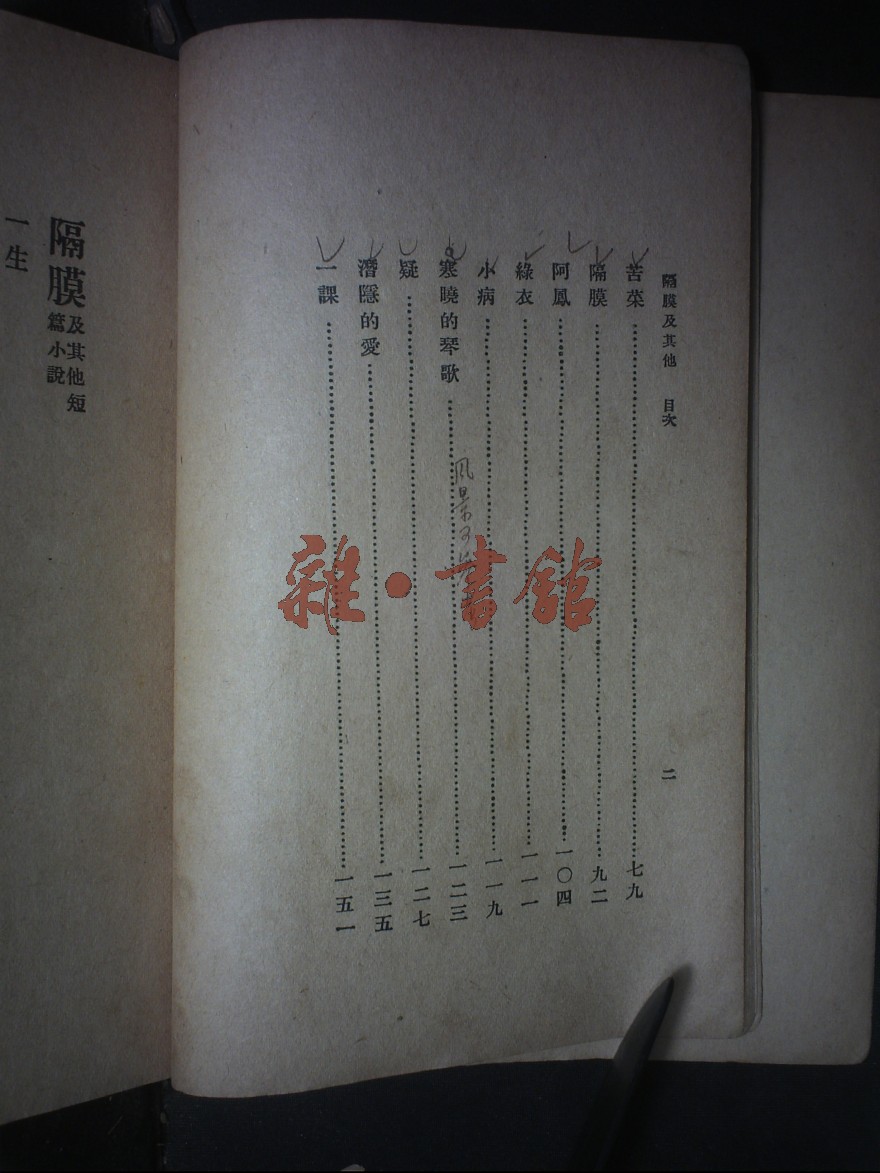 隔膜及其他 目次 二
苦菜……七九
隔膜……九二
阿鳳……一〇四
綠衣……一一一
小病……一一九
寒曉的琴歌……一二三
風景
疑……一二七
潛隱的愛……一三五
一課……一五一
隔膜及其他短篇小說
一生
雜·書館